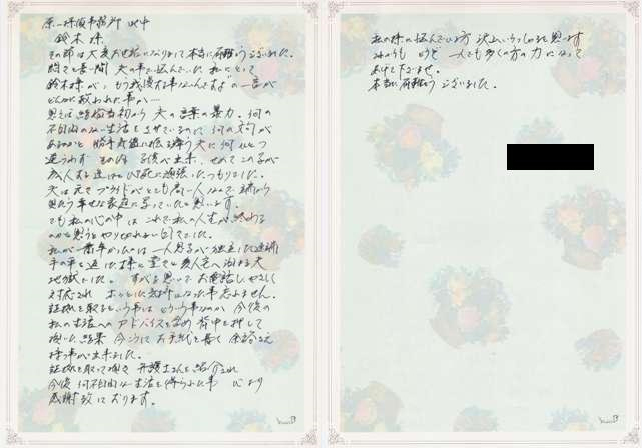 原一探偵事務所 御中
鈴木様
その節は大変お世話になりまして本当に有難うございました。
間でも長い間 夫の事で悩んでいた 私にとって
鈴木様が、もう我慢する事ないんですよ"の一言が
どんなに救われた事か…
思えば結婚当初から 夫の言葉の暴力、何の
不自由のない生活をさせているのに 何の文句が
あるのかと 勝手気儘に振る舞う夫に 何ひとつ
逆らわず その内 子供が出来、せめてこの子が
成人する迄はと必死に頑張ったつもりでした。
夫は元々プライドがとても高い人なので 端から
見たら幸せな家庭に写っていたと思います。
でも私の心の中は これで私の人生が終わる
のかと思うとやりきれない日々でした。
私が一番辛かったのは 一人息子が独立した途端
手の平を返した様に 堂々と愛人宅へ泊まる夫
地獄でした。すがる思いで お電話し、やさしく
対応され ホッとした気持になった事忘れません。
証拠を取るという事は どういう事なのか 今後の
私の生活へのアドバイスを含め 背中を押して
頂いた結果 今こうしてお手紙を書く 余裕さえ
持つ事が出来ました。
証拠を取って頂き 弁護士さんも紹介され
今後 何不自由ない生活を得られた事 心より
感謝致しております。
私の様に悩んでいる方 沢山いらっしゃると思います
これからも どうぞ 一人でも多くの方の力になって
あげて下さいませ。
本当に有難うございました。